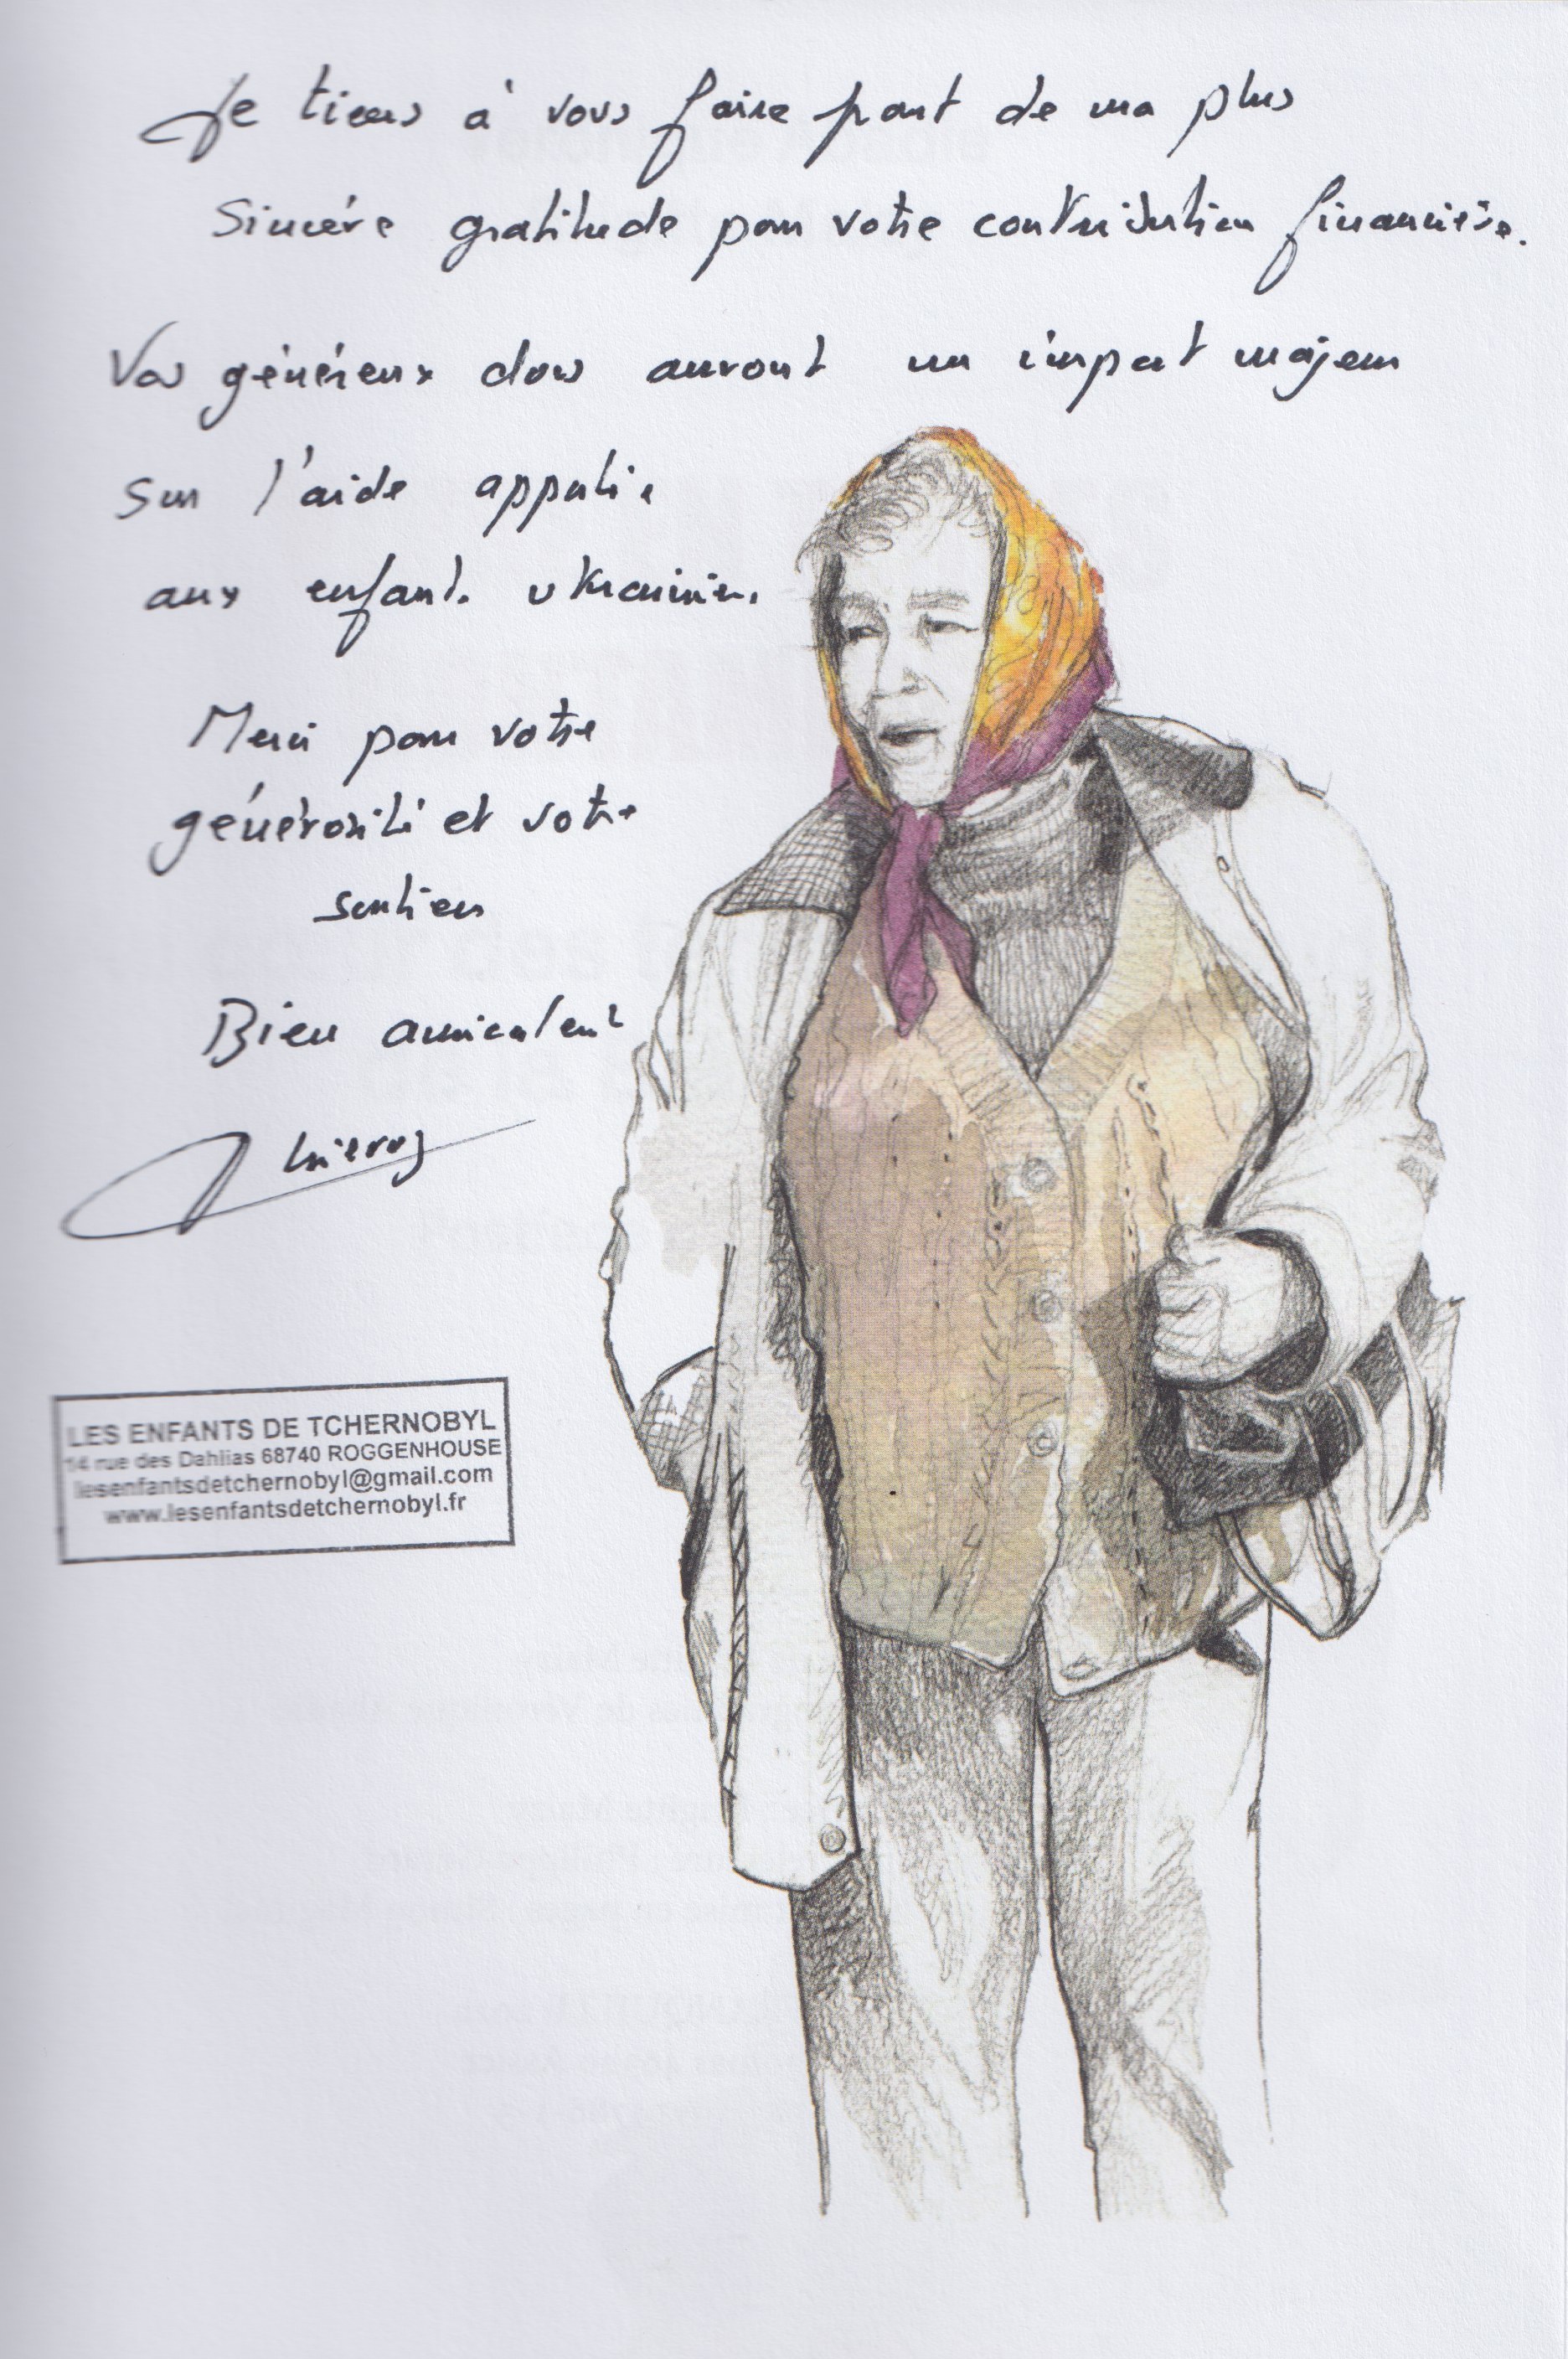 Je tiens à vous faire part de ma plus
Sincère gratitude pour votre contribution financière.
Vos généreux dons auront un impact majeur
Sur l'aide apportée
aux enfants ukrainiens
Merci pour votre
générosité et votre
soutien
Bien amicalement
Thierry
LES ENFANTS DE TCHERNOBYL
14 rue des Dahlias 68740 ROGGENHOUSE
lesenfantsdetchernobyl@gmail.com
www.lesenfantsdetchernobyl.fr